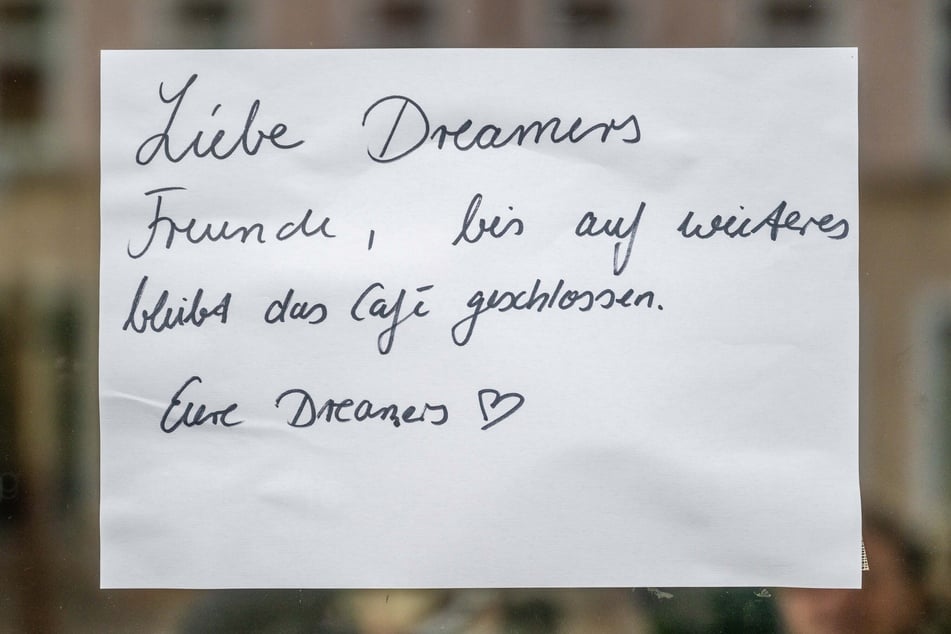 Liebe Dreamers
Freunde, bis auf weiteres
bleibt das Café geschlossen.
Eure Dreamers ♡